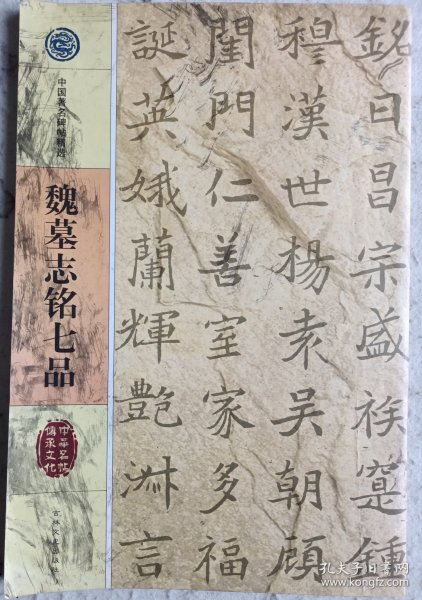 中国著名碑帖精选
魏墓志铭七品
中华名帖
传承文化
吉林文史出版社
銘曰昌宗盛族寔鍾
穆漢世楊袁吳朝顧
閨門仁善室家多福
誕英娥蘭輝艷淋言
孔夫子旧书网
www.kongfz.com